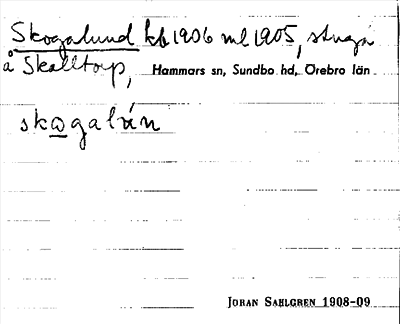 Skogalund kb 1906 ml 1905, stuga
å Skalltorp, Hammars sn, Sundbo hd, Örebro län
skωgalán
JÖRAN SAHLGREN 1908-09